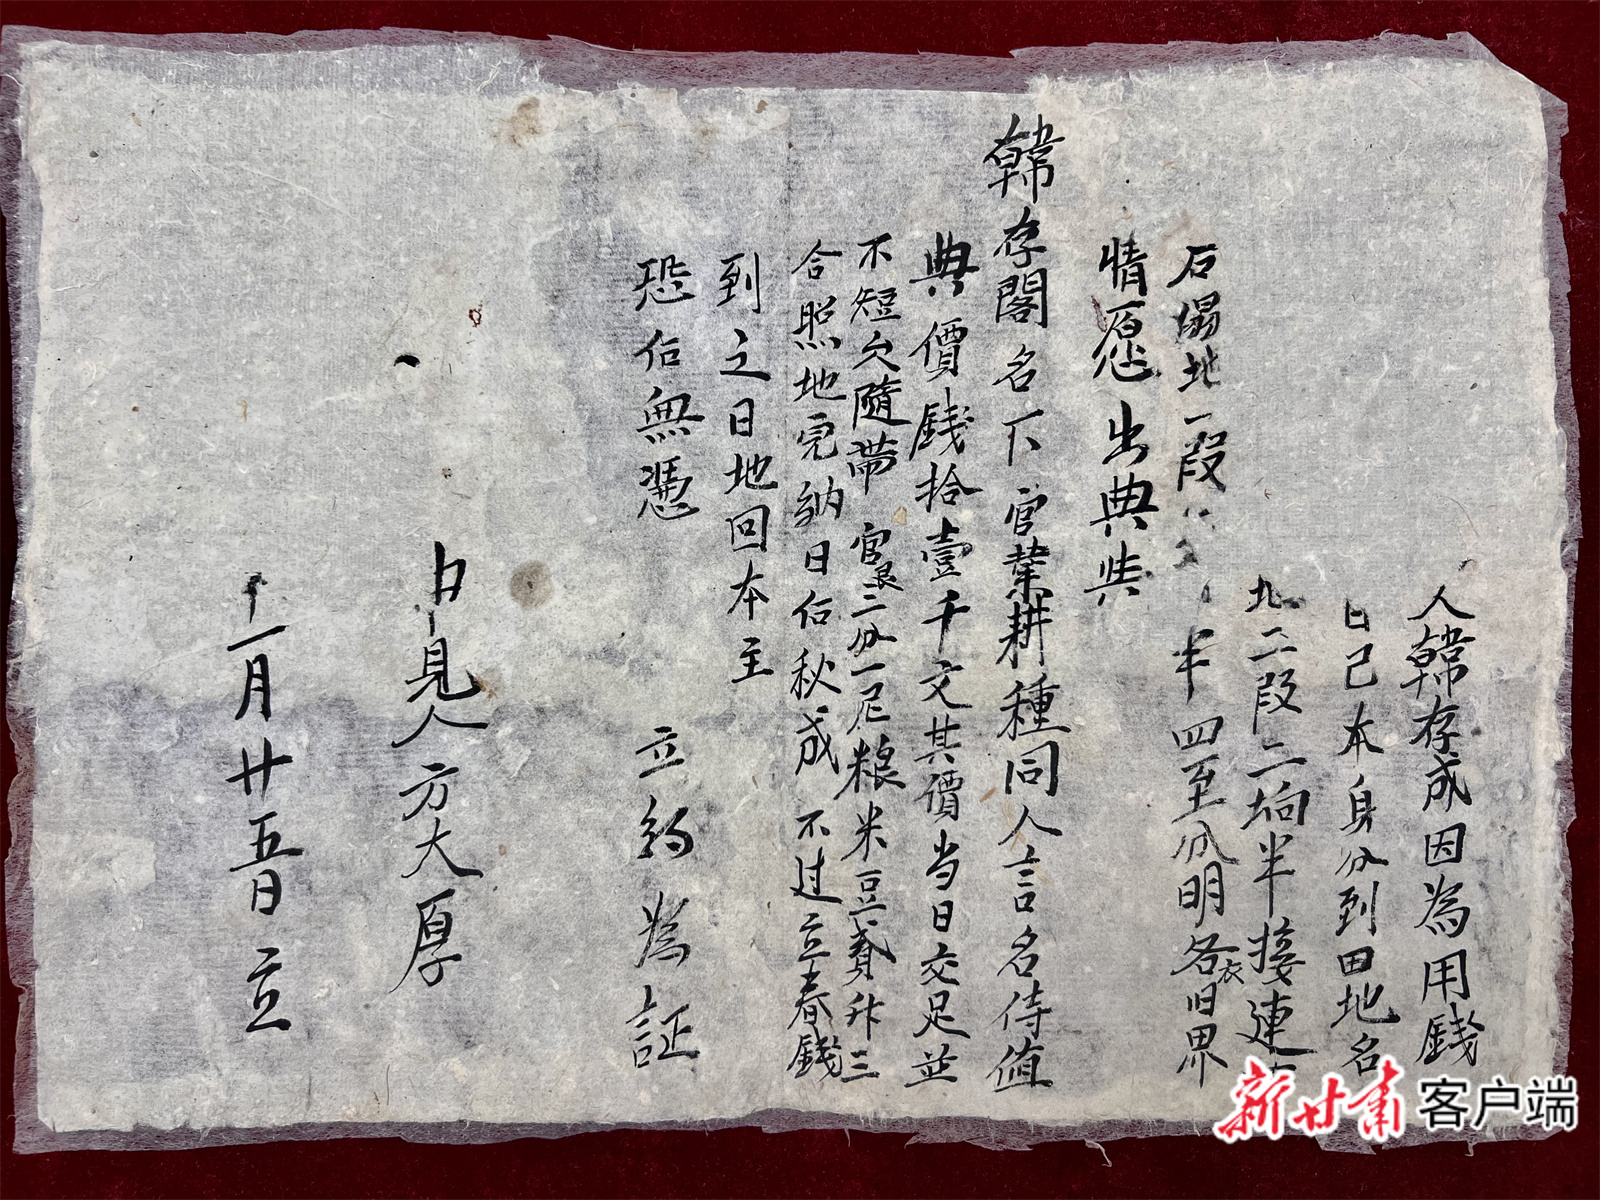 人韓存成因為用錢
自己本身分到田地名
地二段二垧半接連
石塌地一段 半四至分明各衣旧界
情愿出典与
韓存閣名下官業耕種同人言名侍值
典價錢拾壹千文其價当日交足並
不短欠隨帶官退二分一尼粮米豆貳升三
合照地完納日後秋成不过立春錢
到之日地回本主
恐后無憑 立約為証
中見人方大厚
十一月廿五日立
新甘肃客户端